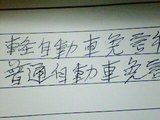 軽自動車免許
普通自動車免許